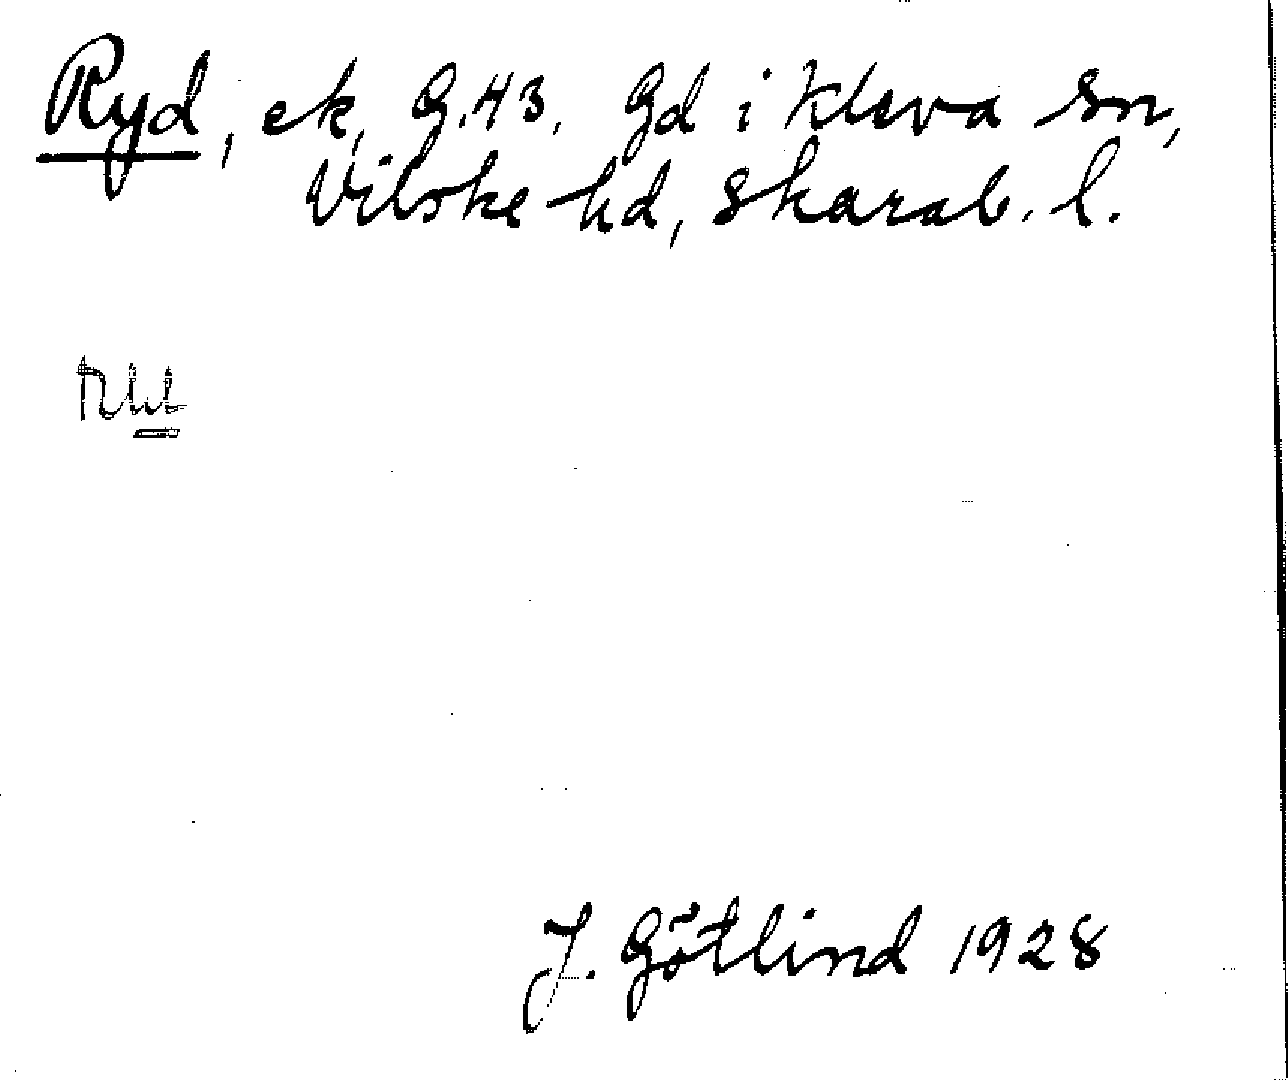 Ryd, ek, G. 43. Gd i Kleva Sn,
Vilske hd, Skarab. l.
J. Götlind 1928